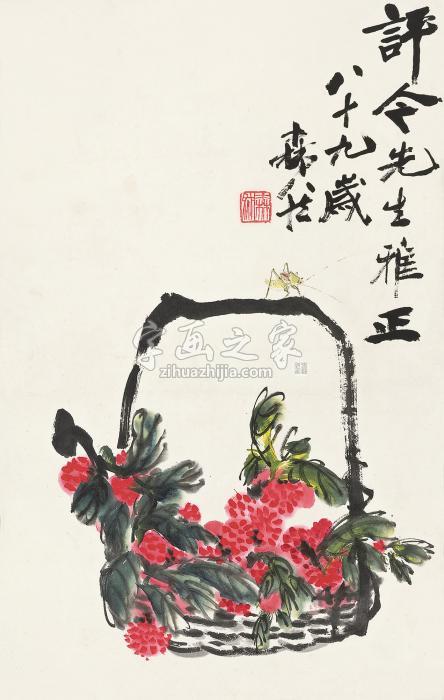 評令先生雅正
八十九歲
森然
字画之家
zihuazhijia.com